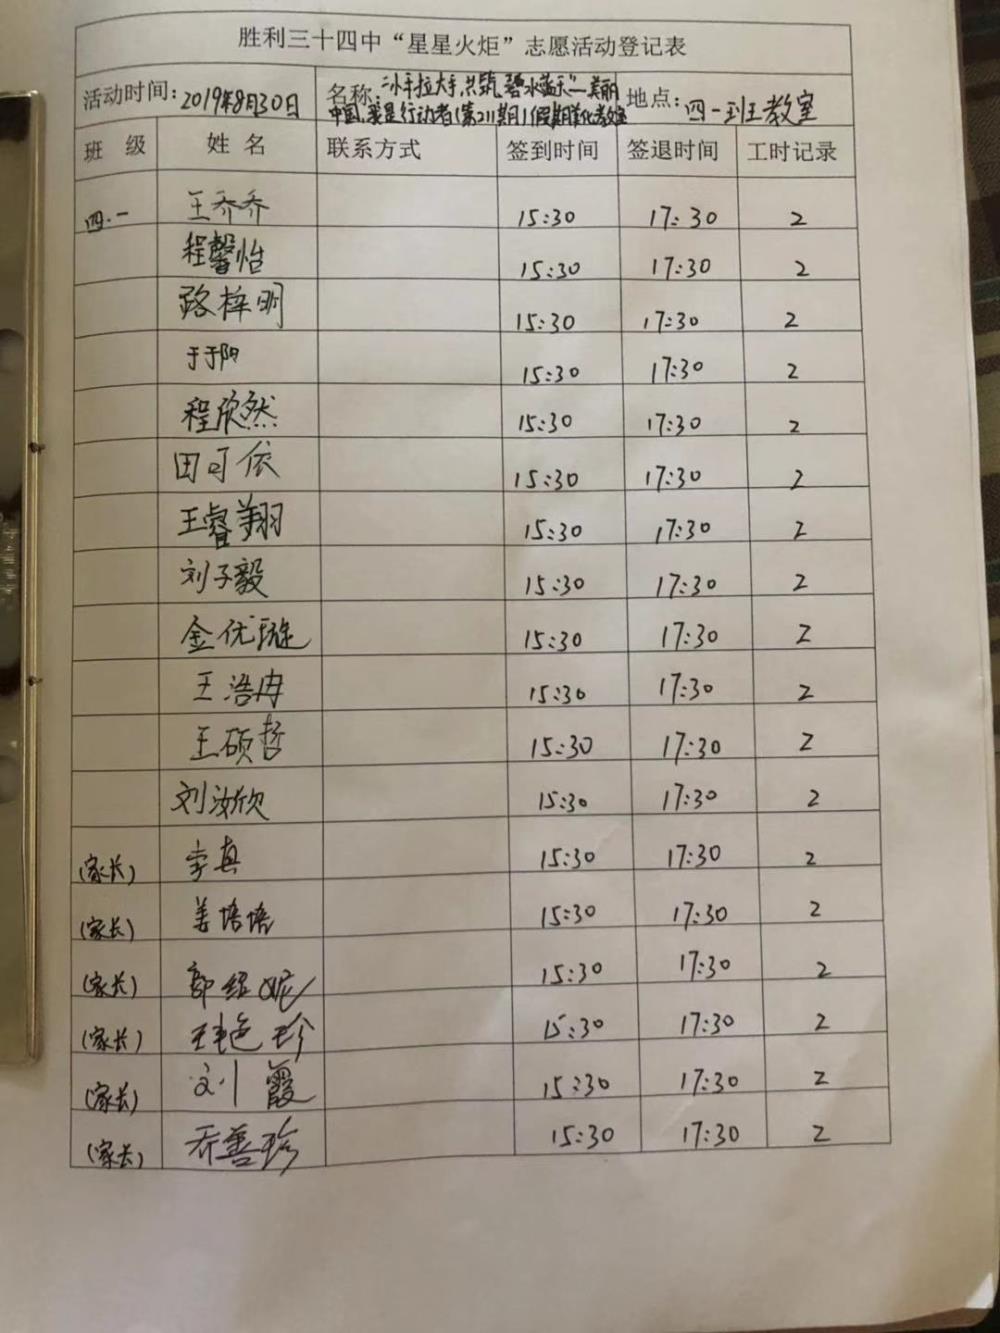 胜利三十四中“星星火炬”志愿活动登记表
活动时间：2019年8月30日 名称：“小手拉大手，共筑碧水蓝天”—美丽 地点：四一班教室
中国，我是行动者（第211期）假期美化教室
班 级 姓 名 联系方式 签到时间 签退时间 工时记录
四.一 王乔乔 15:30 17:30 2
程馨怡 15:30 17:30 2
路梓明 15:30 17:30 2
于于阳 15:30 17:30 2
程欣然 15:30 17:30 2
田可依 15:30 17:30 2
王睿翔 15:30 17:30 2
刘子毅 15:30 17:30 2
金优璇 15:30 17:30 2
王浩冉 15:30 17:30 2
王硕哲 15:30 17:30 2
刘汝欣 15:30 17:30 2
（家长） 李真 15:30 17:30 2
（家长） 姜培培 15:30 17:30 2
（家长） 郭绍妮 15:30 17:30 2
（家长） 王艳珍 15:30 17:30 2
（家长） 刘霞 15:30 17:30 2
（家长） 乔善珍 15:30 17:30 2